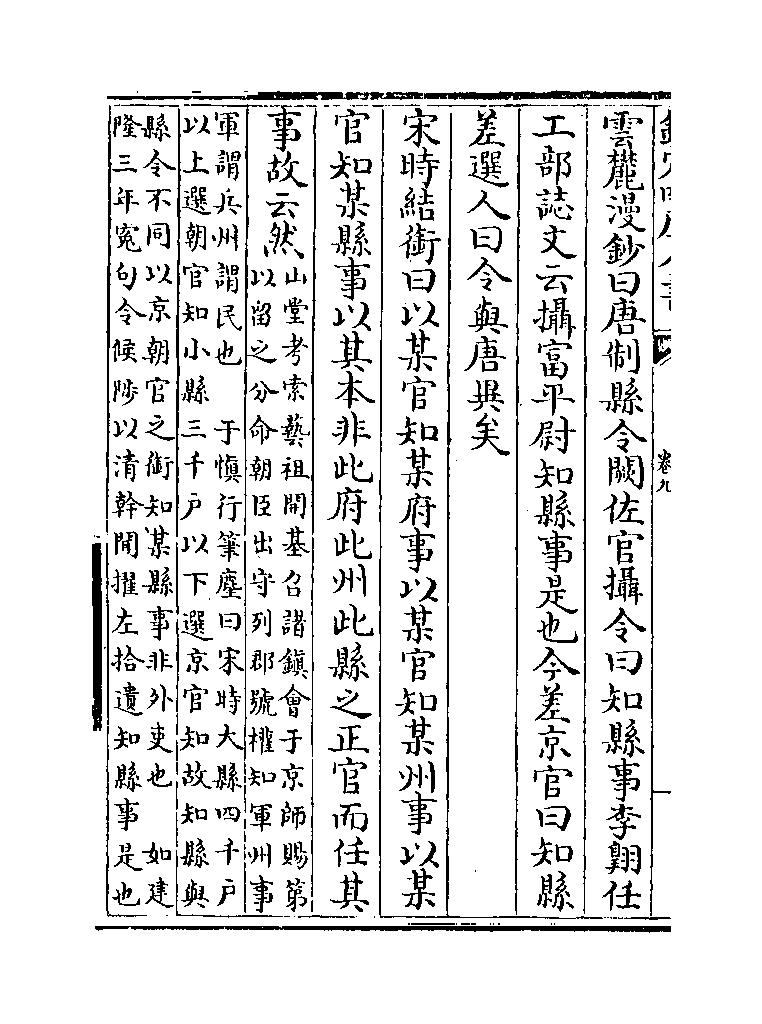 卷九
雲麓漫鈔曰唐制縣令闕佐官攝令曰知縣事李翺任
工部誌文云攝富平尉知縣事是也今差京官曰知縣
差選人曰令與唐異矣
宋時結銜曰以某官知某府事以某官知某州事以某
官知某縣事以其本非此府此州此縣之正官而任其
事故云然
山堂考索藝祖開基召諸鎮會于京師賜第
以留之分命朝臣出守列郡號權知軍州事
軍謂兵州謂民也 于慎行筆塵曰宋時大縣四千戶
以上選朝官知小縣三千戶以下選京官知故知縣與
縣令不同以京朝官之銜知某縣事非外吏也 如建
隆三年冤句令候陟以清幹聞擢左拾遺知縣事是也